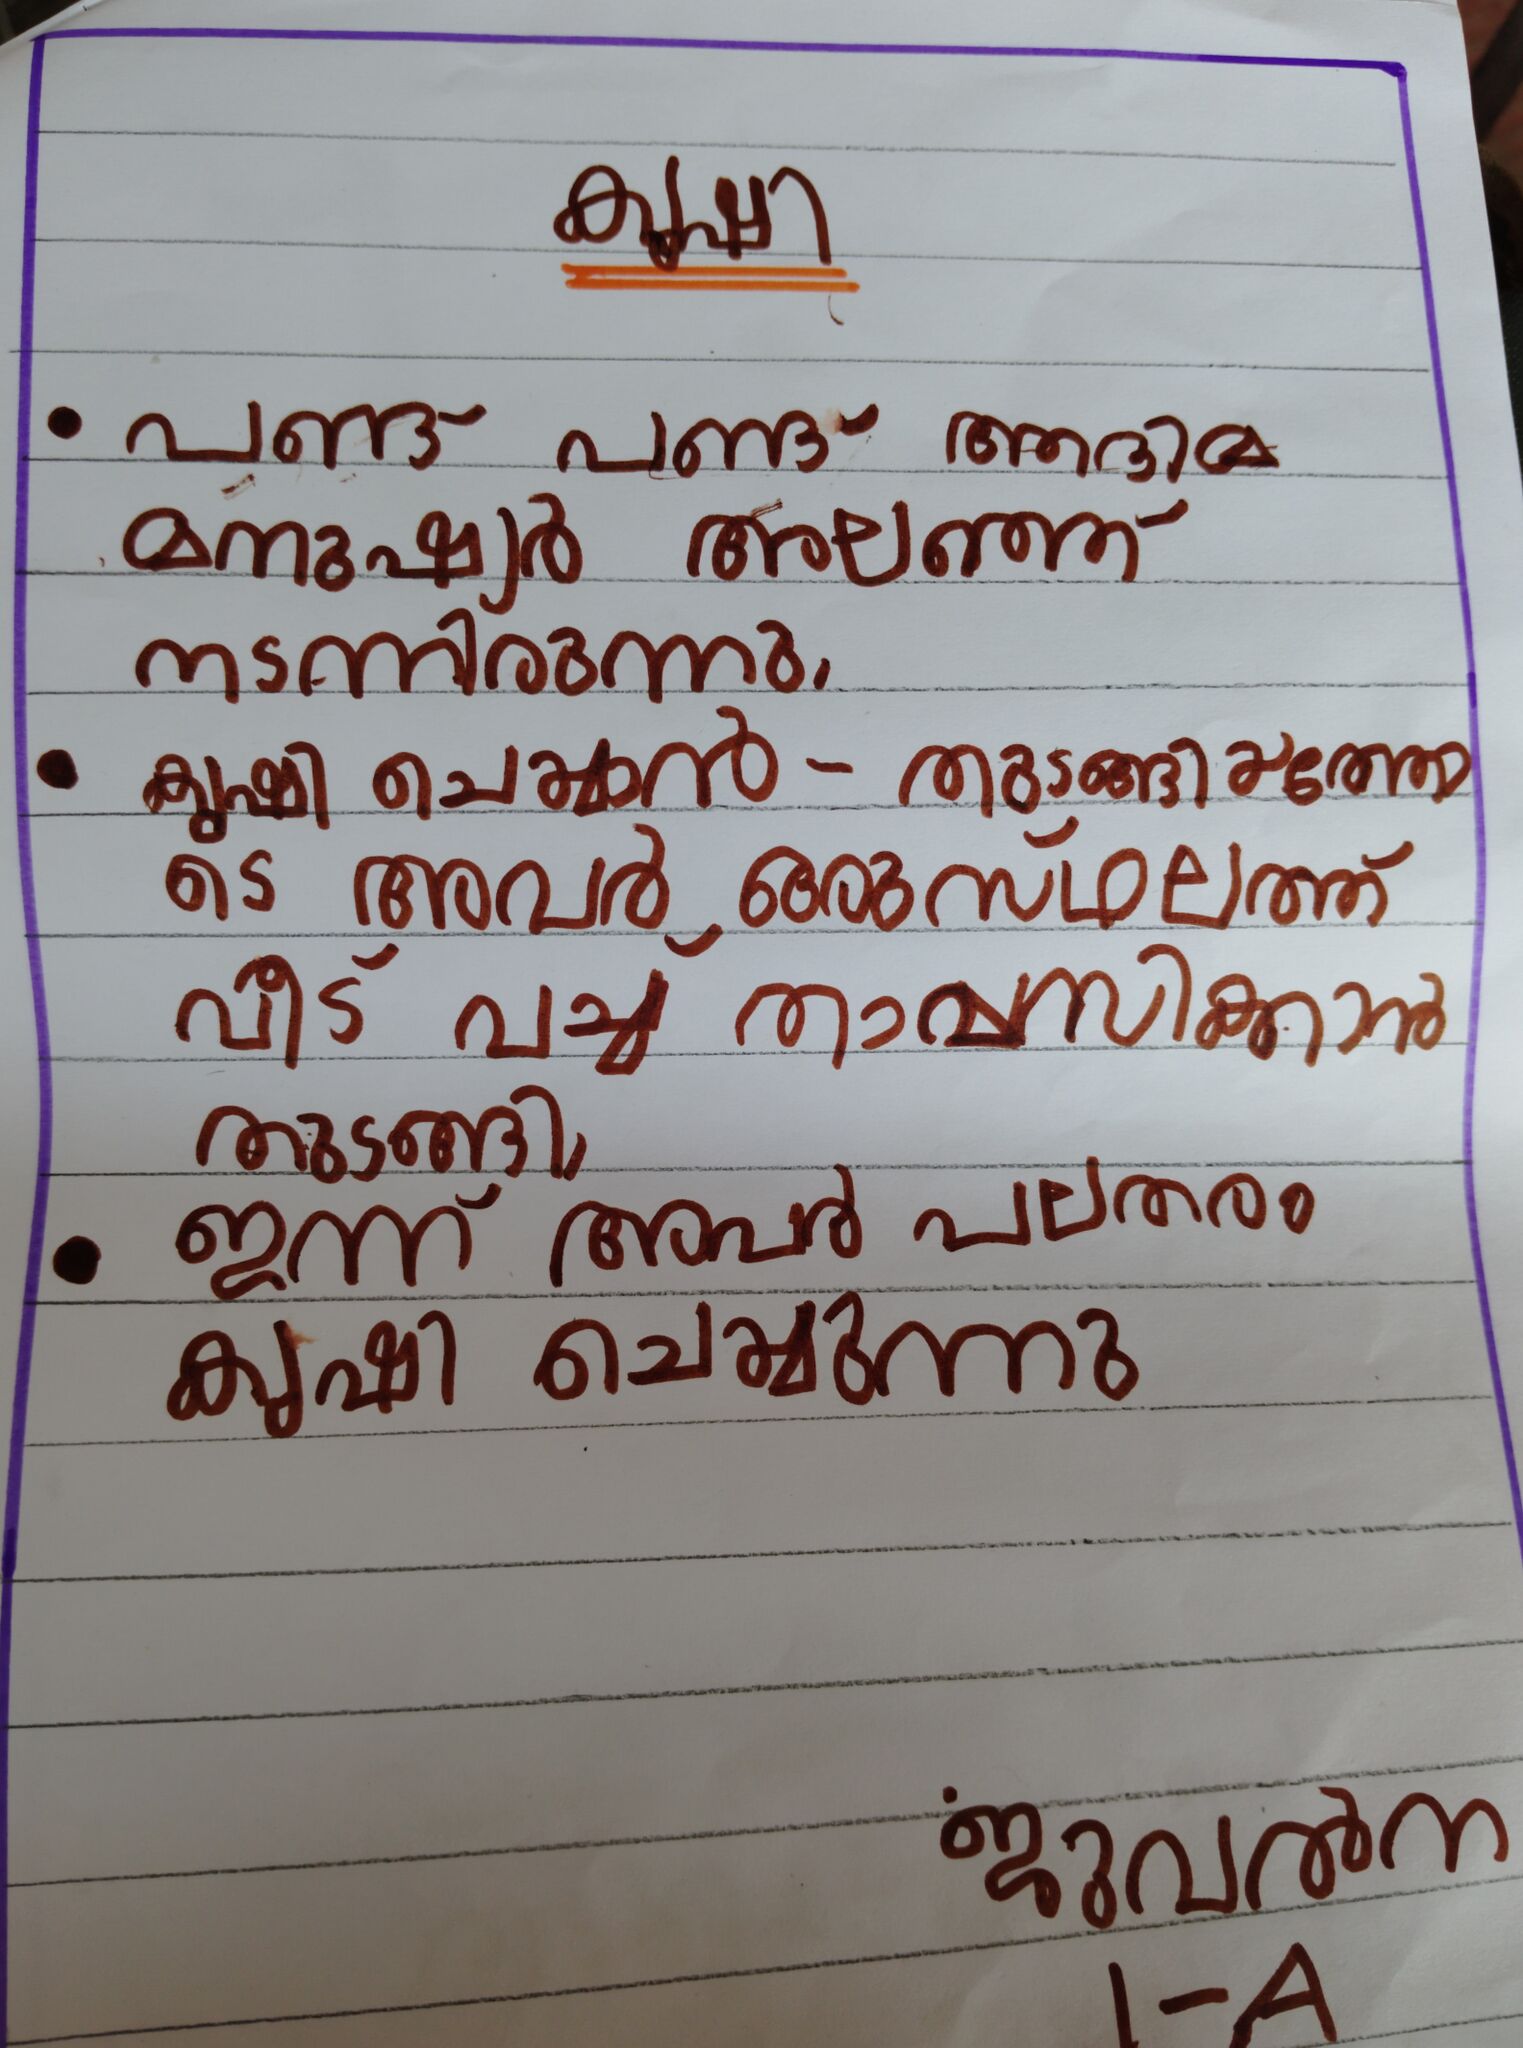 കൃഷി
• പണ്ട് പണ്ട് ആദിമ
മനുഷ്യർ അലഞ്ഞ്
നടന്നിരുന്നു.
• കൃഷി ചെയ്യാൻ - തുടങ്ങിയത്തോ
ടെ അവർ ഒരുസ്ഥലത്ത്
വീട് വച്ച് താമസിക്കാൻ
തുടങ്ങി.
• ഇന്ന് അവർ പലതരം
കൃഷി ചെയ്യുന്നു
ജുവൽന
1-A